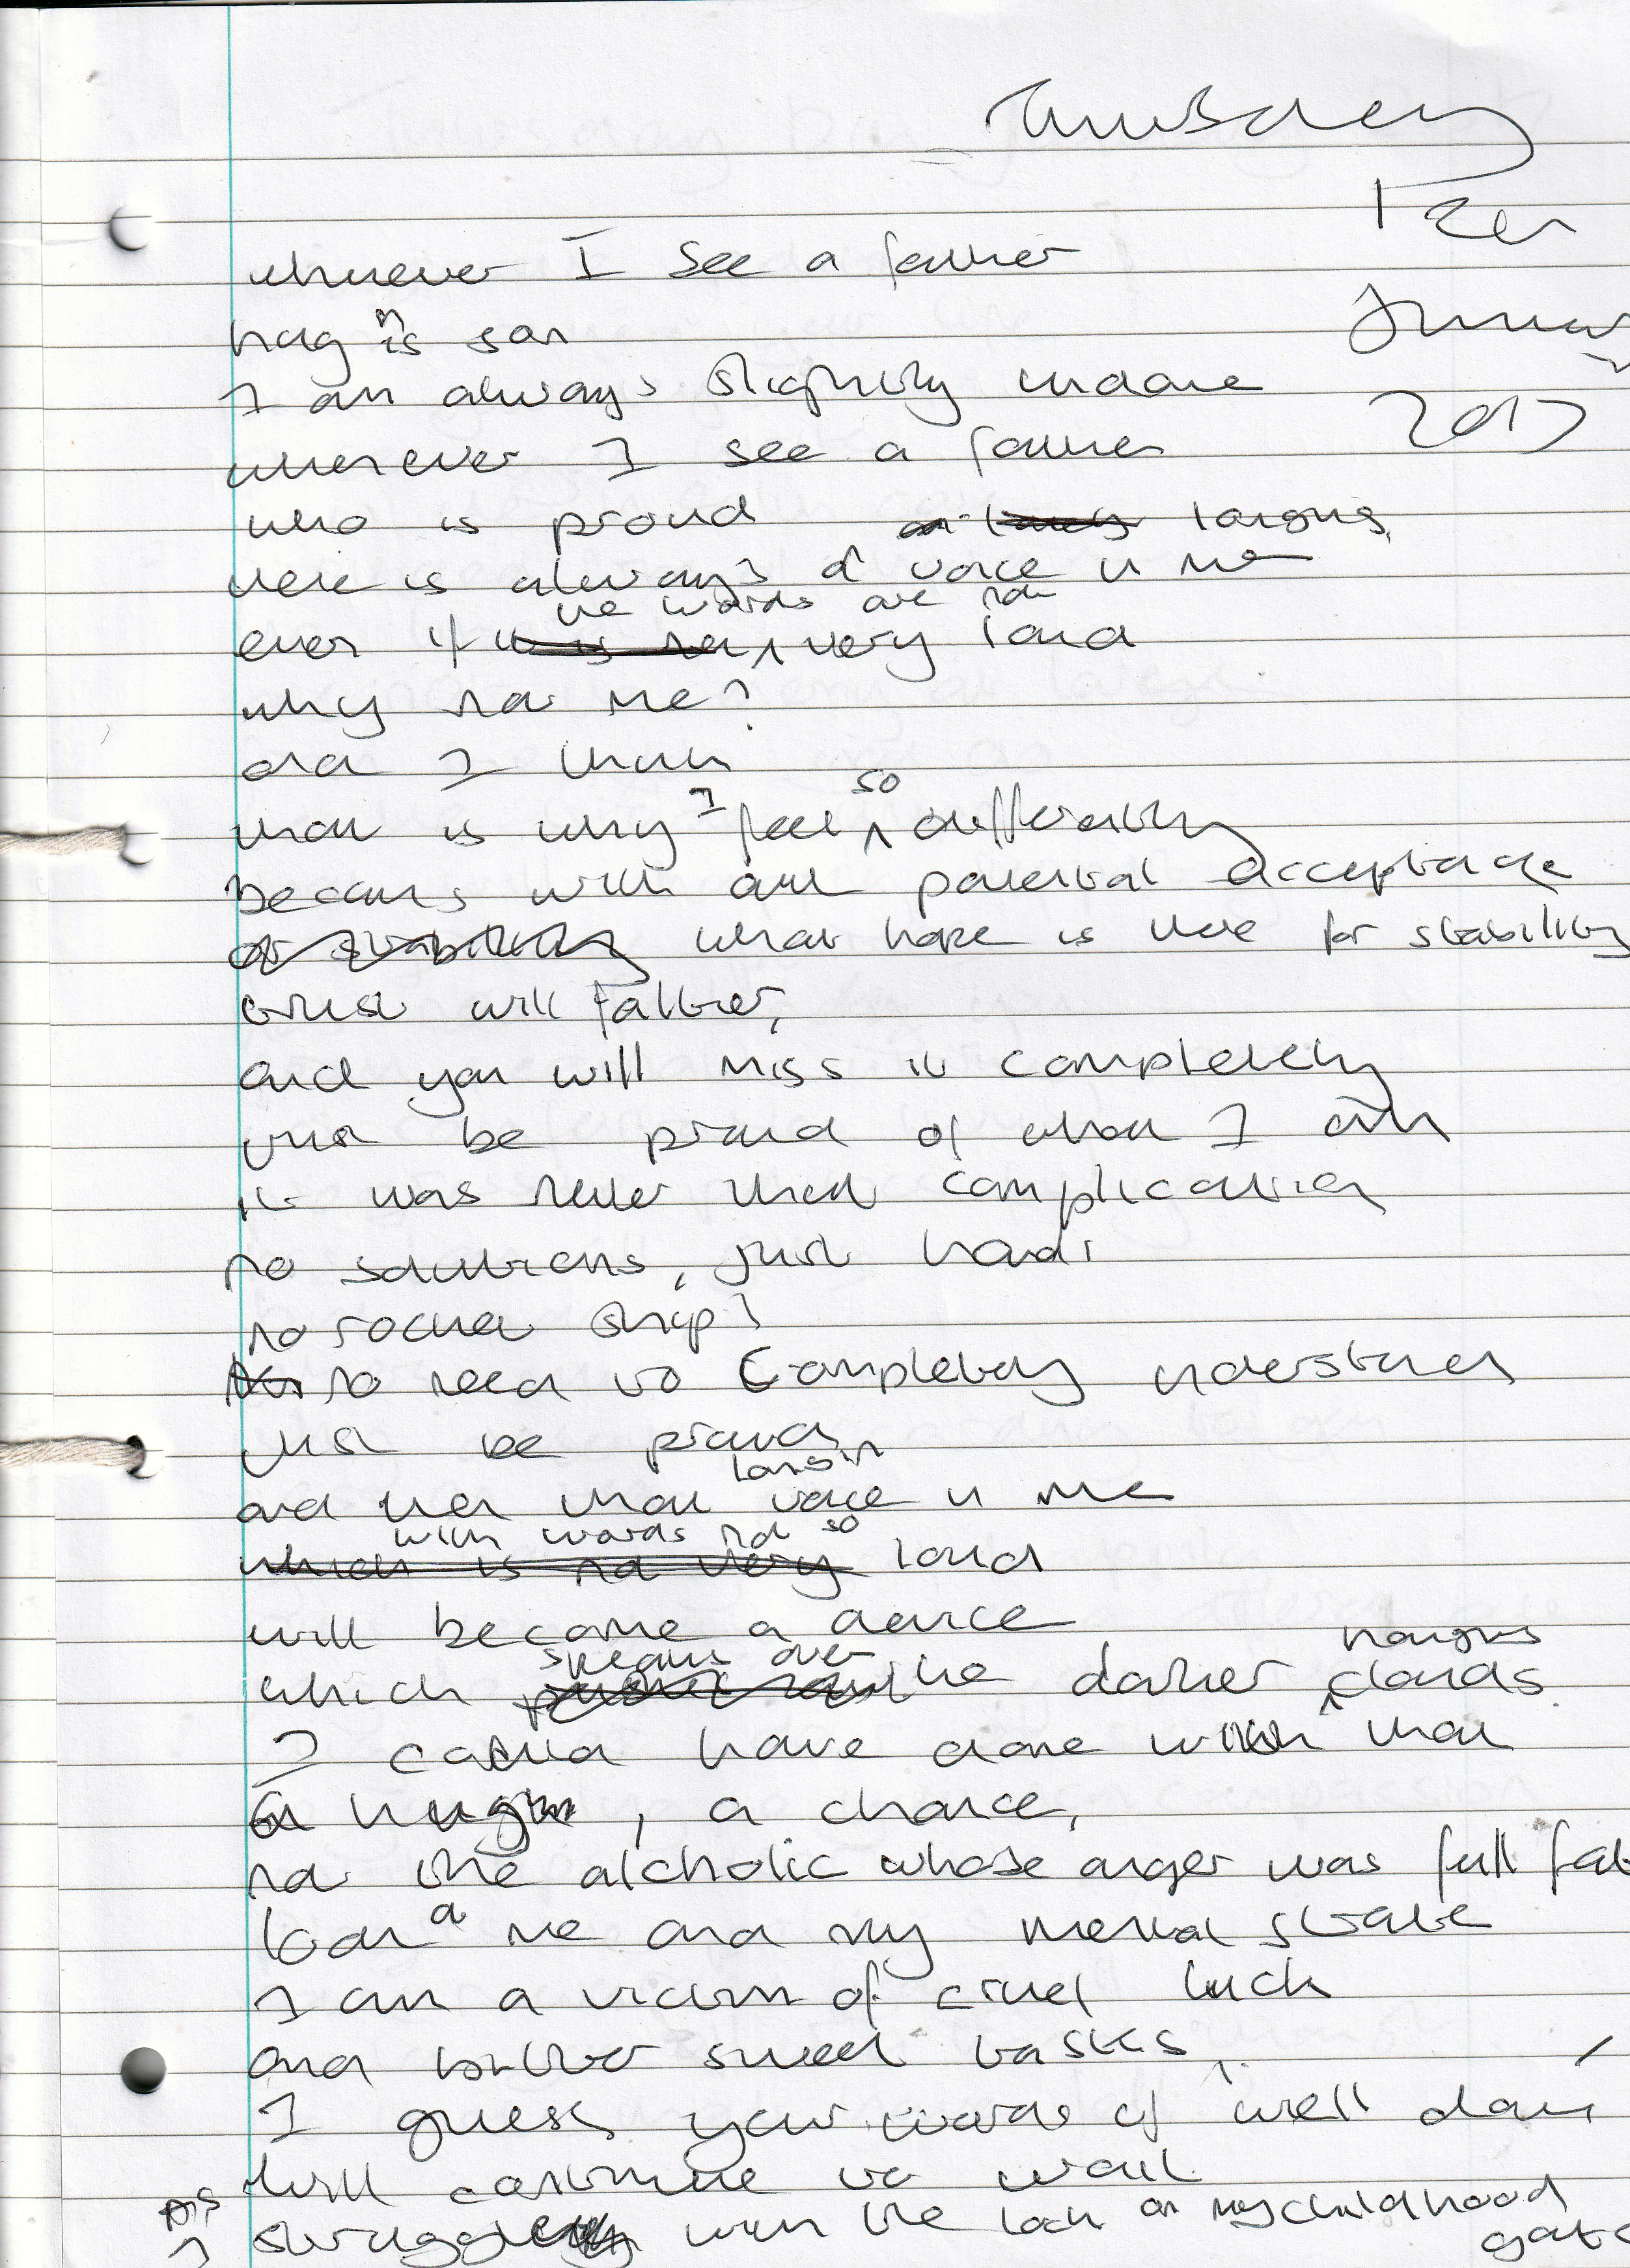 Thursday
12th
January
2017
whenever I see a father
hug his son
I am always slightly undone
whenever I see a father
who is proud
there is always a voice in me
even if the words are not very loud
why not me?
and I think
that is why I feel so differently
because without parental acceptance
what hope is there for stability
trust will falter,
and you will miss it completely
just be proud of what I am
it was never that complicated
no solutions, just hard
no rocket ship!
no need to completely understand
just be proud
and then that voice in me
with words not so loud
will become a device
which speaks over the darker hanging clouds
I could have done with that
a hug, a chance,
not the alcoholic whose anger was full fat
look at me and my mental state
I am a victim of cruel luck
and bitter sweet tastes,
I guess your words of 'well done'
will continue to wait
as I struggle with the lock on my childhood gate